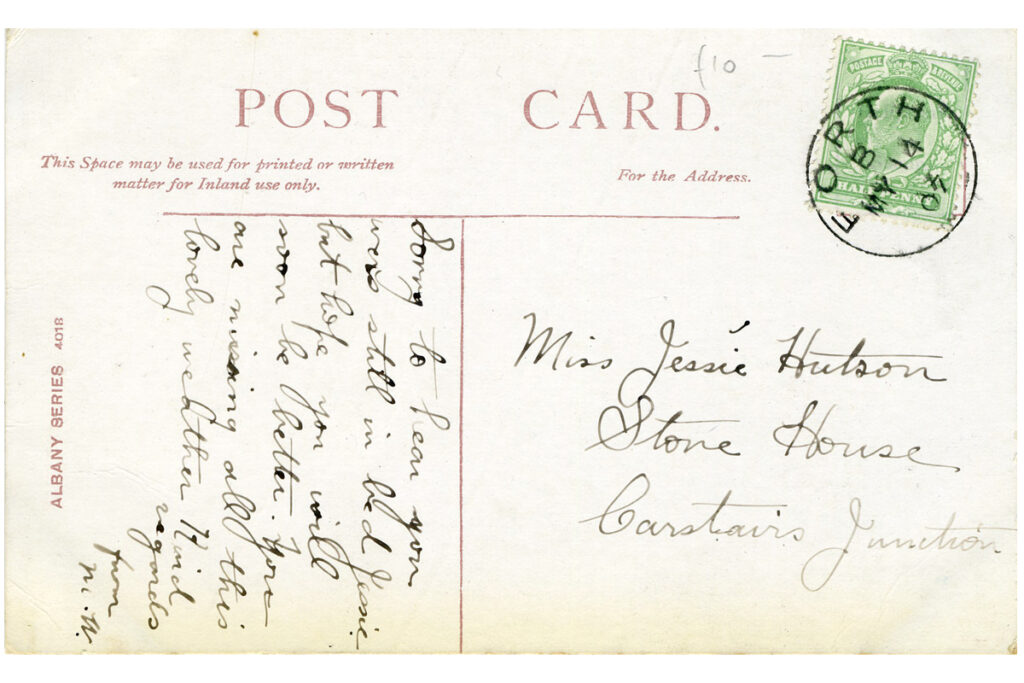 POST CARD.
This Space may be used for printed or written
matter for Inland use only.
For the Address.
10 -
POSTAGE & REVENUE
HALFPENNY
FORTH
B
MY 14
Sorry to hear you
were still in bed Jessie
but hope you will
soon be better. You
are missing all this
lovely weather Kind
regards
from
M.W.
Miss Jessie Hutson
Stone House
Carstairs Junction
ALBANY SERIES 4018